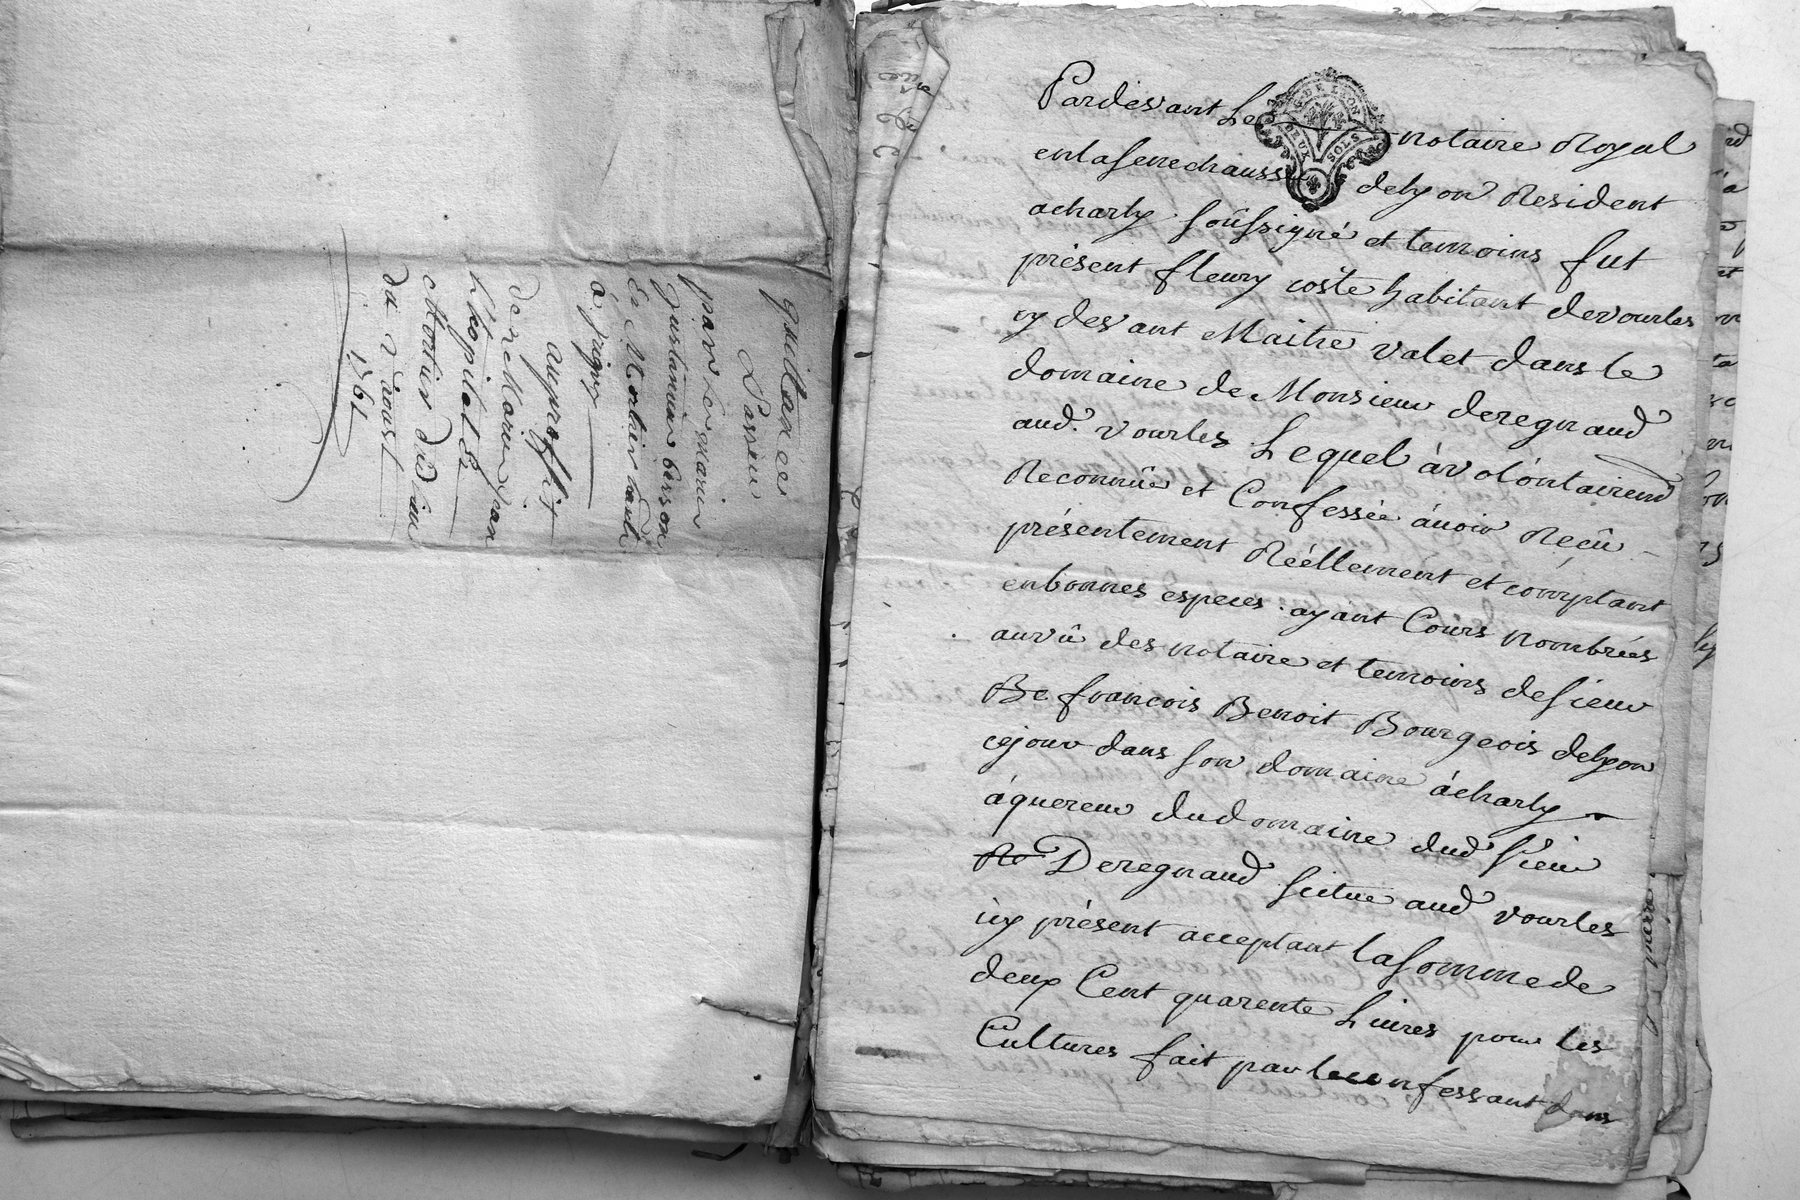 quittance
passée
par les mariés
justinien besson
& Mortier tante
à grigny
au proffit
de ne Marie Jean
L'hopital &
Mortier dud lieu
du 2 aoust
1761
Pardevant Le notaire Royal
en la senechaussée de lyon Resident
a charly soûssigné et temoins fut
présent fleury coste habitant de vourles
cy devant Maitre valet dans le
domaine de Monsieur deregnaud
aud. vourles Lequel à volóntairemt
Reconnûe et Confessée ávoir Reçû -
présentement Réellement et comptant
en bonnes especes ayant Cours nombrées
au vû des notaire et temoins de sieur
Be françois Benoit Bourgeois de lyon
cejour dans son domaine á charly
áquereur du domaine dud sieur
Deregnaud scitue aud vourles
icy présent acceptant la somme de
deux Cent quarente Livres pour les
Cultures fait par le confessant dans
G. DE LYON
DEUX SOLS